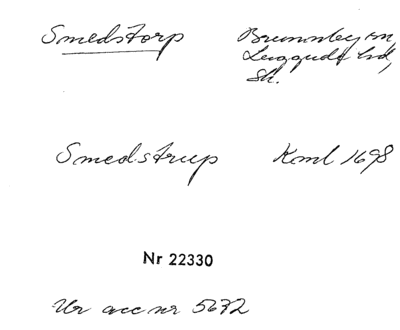 Smedstorp Brunnby sn,
Luggude hd,
Sk.
Smedstrup Kml 1698
Nr 22330
Ur acc nr 5672